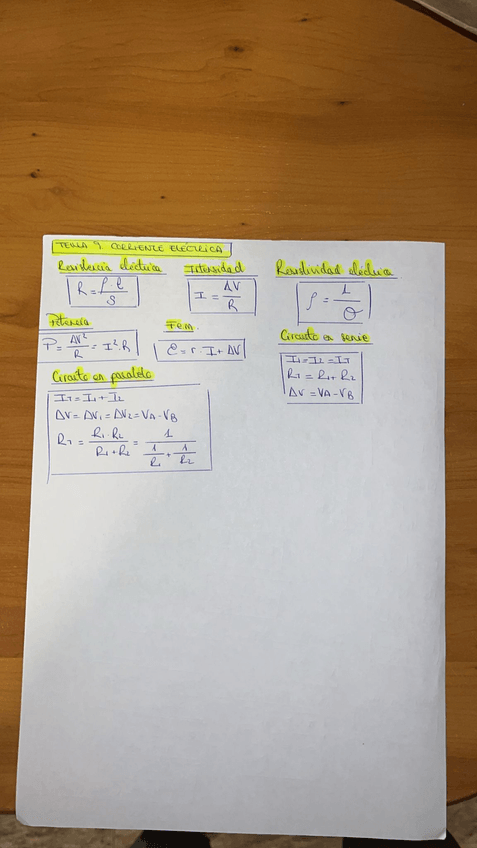 TEMA 9. CORRIENTE ELÉCTRICA
Resistencia eléctrica
R = ρ·l / S
Intensidad
I = ΔV / R
Resistividad eléctrica
ρ = 1 / σ
Potencia
P = ΔV² / R = I²·R
Fem.
ε = r·I + ΔV
Circuito en serie
I₁ = I₂ = IT
RT = R₁ + R₂
ΔV = VA - VB
Circuito en paralelo
IT = I₁ + I₂
ΔV = ΔV₁ = ΔV₂ = VA - VB
RT = R₁·R₂ / R₁+R₂ = 1 / 1/R₁ + 1/R₂